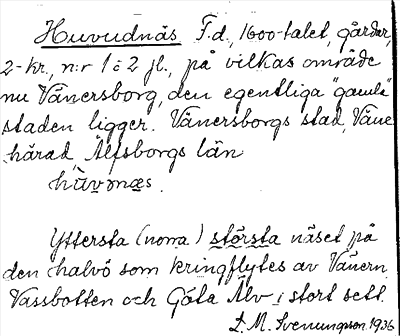 Huvudnäs F.d., 1600-talet, gårdar,
2-kr., n:r 1 o 2 fl., på vilkas område
nu Vänersborg, den egentliga "gamla"
staden ligger. Vänersborgs stad, Väne
härad, Älfsborgs län
hüvənæs.
Yttersta (norra) största näset på
den halvö som kringflytes av Vänern
Vassbotten och Göta Älv i stort sett.
L. M. Svenungson 1936